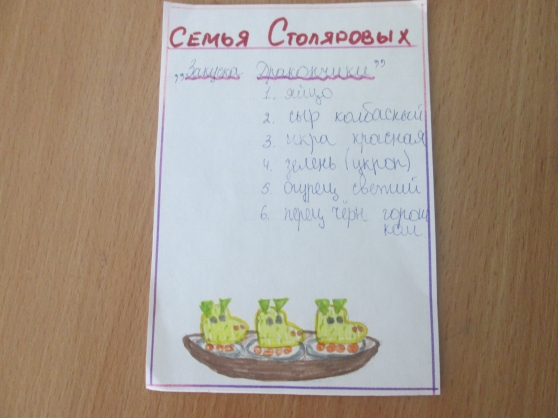 Семья Столяровых
„Закуска Дракончики”
1. яйцо
2. сыр колбасный
3. икра красная
4. зелень (укроп)
5. огурец свежий
6. перец чёрн горош
ком